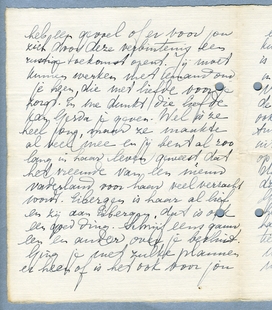 heb geen gevoel of er voor jou
zich door deze verbintenis een
rustige toekomst opent. Jij moet
kunnen werken met iemand om
je heen, die met liefde voor je
zorgt. En me dunkt die liefde
kan Gerda je geven. Wel is ze
heel jong, maar ze maakte
al veel mee en jij bent al zoo
lang in haar leven geweest dat
het vreemde van een nieuw
vaderland voor haar veel verzacht
wordt. Eibergen is haar al lief
en zij aan Eibergen, dat is ook
een goed ding. Schrijf eens gauw
een en ander over je
ging je met zulke plannen
er heen of is het ook voor jou